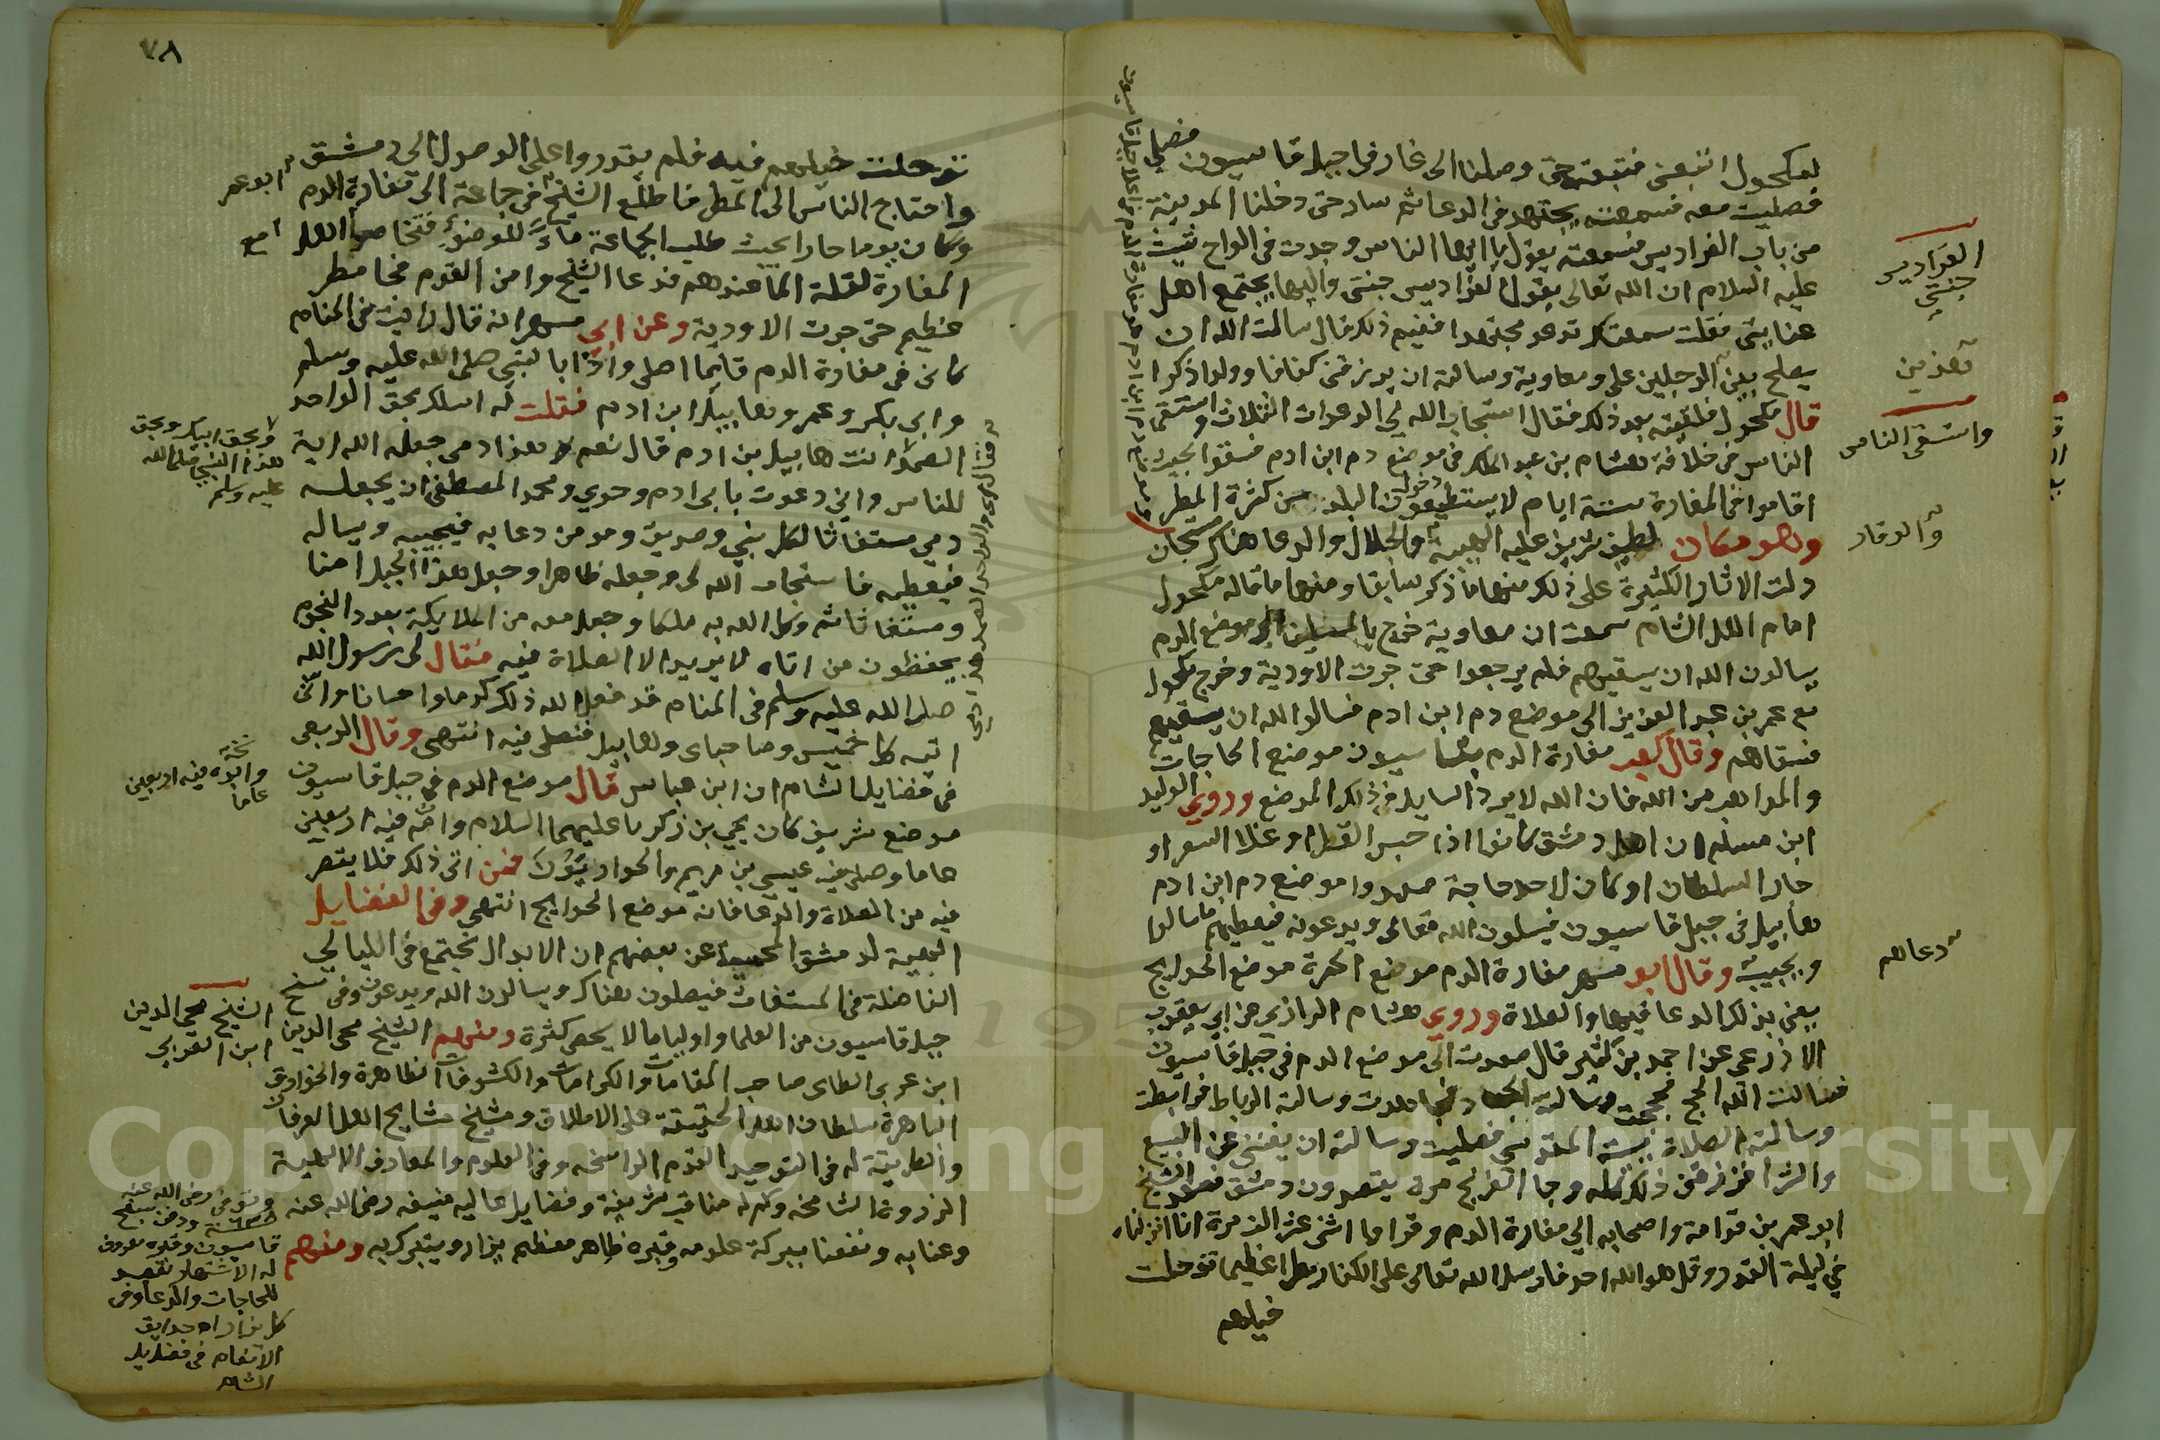 لمكحول اتبعني فتبعته حتى وصلنا الى غار في جبل قاسيون فصلى
فصليت معه فسمعته يجتهد في الدعا ثم سار حتى دخلنا المدينة
من باب الفراديس فسمعته يقول يا ايها الناس وجدت في الواح شيث
عليه السلام ان الله تعالى يقول الفراديس جنتي واليها يجتمع اهل
عنايتي فقلت سمعتك تدعو مجتهدا ففيم ذلك قال سالت الله ان
يصلح بين الرجلين علي ومعاوية وسالته ان يرزقني كفافا وولدا ذكرا
قال مكحول فلقيته بعد ذلك فقال استجاب الله لي الدعوات الثلاث واستسقى
الناس في خلافة هشام بن عبد الملك في موضع دم ابن ادم فسقوا بحيث
اقاموا في المغارة ستة ايام لا يستطيعون دخول البلد من كثرة المطر
وهو مكان لطيف شريف عليه الهيبة والجلال والدعا هناك مستجاب
دلت الاثار الكثيرة على ذلك منها ما ذكر سابقا ومنها ما قاله مكحول
امام اهل الشام سمعت ان معاوية خرج بالمسلمين الى موضع الدم
يسالون الله ان يسقيهم فلم يرجعوا حتى جرت الاودية وخرج مكحول
مع عمر بن عبد العزيز الى موضع دم ابن ادم فسالوا الله ان يسقيهم
فسقاهم وقال كعب مغارة الدم بقاسيون موضع الحاجات
والمواهب من الله فان الله لا يرد السايل في ذلك الموضع وروي الوليد
ابن مسلم ان اهل دمشق كانوا اذا حبس القطر او غلا السعر او
جار السلطان او كان لاحد حاجة صعدوا موضع دم ابن ادم
هابيل في جبل قاسيون فيسلون الله تعالى ويدعونه فيعطيهم ما سالوا
ويجيب وقال ابو مسهر مغارة الدم موضع الحمرة موضع الحوايج
يعني بذلك الدعا فيها والصلاة وروي هشام الرازي عن ابي يعقوب
الاذرعي عن احمد بن كثير قال صعدت الى موضع الدم في جبل قاسيون
فسالت الله الحج فحججت وسالته الجهاد فجاهدت وسالته الرباط فرابطت
وسالته الصلاة ببيت المقدس فصليت وسالته ان يغنني عن البيع
والشرا فرزقني ذلك كله وجا الفرنج مرة يقصدون دمشق فصعد الشيخ
ابو عمر بن قدامة واصحابه الى مغارة الدم وقراوا اثني عشر الف مرة انا انزلناه
في ليلة القدر وقل هو الله احد فارسل الله تعالى على الكفار مطرا عظيما توحلت
خيلهم
الفراديس
جنتي
هذين
واستسقى الناس
والوقار
دعاهم
٧٨
توحلت خيلهم فيه فلم يقدروا على الوصول الى دمشق
واحتاج الناس الى المطر فاطلع الشيخ في جماعة الى مغارة الدم
وكان يوما حارا بحيث طلب الجماعة ماء للوضوء فتخاصموا اهل
المغارة لقلة الما عندهم فدعا الشيخ وامن القوم فجا مطر
عظيم حتى جرت الاودية وعن ابي مسهر انه قال رايت في المنام
كاني في مغارة الدم قايما اصلي واذا بالنبي صلى الله عليه وسلم
وابي بكر وعمر وهابيل ابن ادم فقلت له اسلك بحق الواحد
الصمد انت هابيل بن ادم قال نعم هذا دمي جعله الله اية
للناس واني دعوت بابي ادم وحوي ومحمد المصطفى ان يجعله
دمي مستغاثا لكل نبي وصديق ومومن دعا به فيجيبه ويساله
فيعطيه فاستجاب الله لي وجعله طاهرا وجعل هذا الجبل امنا
ومستغاثا ثم وكل الله به ملكا وجعل معه من الملايكة بعدد النجوم
يحفظون من اتاه لا يريد الا الصلاة فيه فقال لي رسول الله
صلى الله عليه وسلم في المنام قد فعل الله ذلك كرما واحسانا واني
اتيه كل خميس وصاحباي وهابيل فنصلي فيه انتهى وقال الربعي
في فضايل الشام ان ابن عباس قال موضع الدم في جبل قاسيون
موضع شريف كان يحيى بن زكريا عليهما السلام وامه فيه اربعين
عاما وصلى فيه عيسى بن مريم والحواريون فمن اتى ذلك فلا يقصر
فيه من الصلاة والدعا فانه موضع الحوايج انتهى وفي الفضايل
البهية لدمشق المحمية عن بعضهم ان الابدال تجتمع في الليالي
الفاضلة في المستغاث فيصلون هناك ويسالون الله ويدعون وفي سفح
جبل قاسيون من العلما واوليا ما لا يحصى كثرة ومنهم الشيخ محي الدين
ابن عربي الطاي صاحب المقامات والكرامات والكشوفات الظاهرة والخوارق
الباهرة سلطان اهل الحقيقة على الاطلاق وشيخ مشايخ اهل العرفان
والطريقة له في التوحيد القدم الراسخه وفي العلوم والمعارف الالهية
الذروة الشامخه وكم له مناقب شريفة وفضايل عاليه منيفه رضي الله عنه
وعنا به ونفعنا ببركة علومه وقبره ظاهر معظم يزار ويتبرك به ومنهم
ابو عمر
مع
وبحق ابيك وبحق
هذا النبي صلى الله
عليه وسلم
وابوه فيه اربعين
عاما
الشيخ محي الدين
ابن العربي
وتوفي رضي الله عنه
سنة ٦٣٨ ودفن بسفح
قاسيون وقبره معروف
له الاشتهار يقصد
للحاجات والدعا وفي
الانعام في فضايل
الشام
Copyright © King Saud University
195